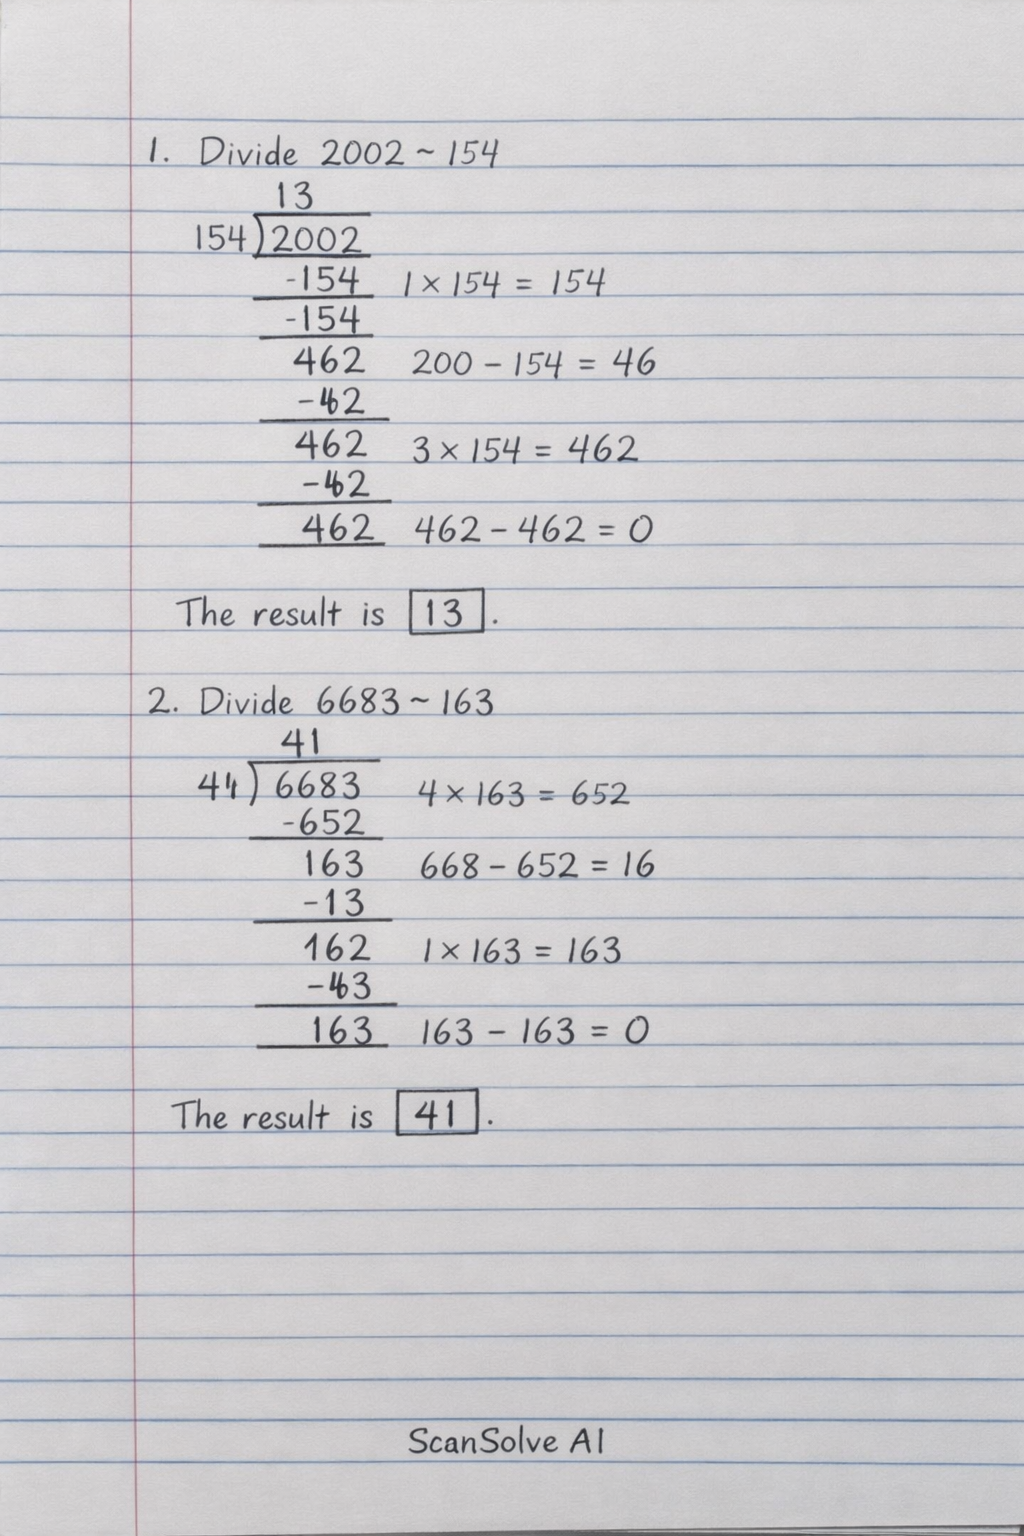 1. Divide 2002 ~ 154
13
154)2002
-154 1 × 154 = 154
-154
462 200 - 154 = 46
-462
462 3 × 154 = 462
-462
462 462 - 462 = 0
The result is 13.
2. Divide 6683 ~ 163
41
)6683 4 × 163 = 652
-652
163 668 - 652 = 16
-13
162 1 × 163 = 163
163 163 - 163 = 0
The result is 41.
ScanSolve AI